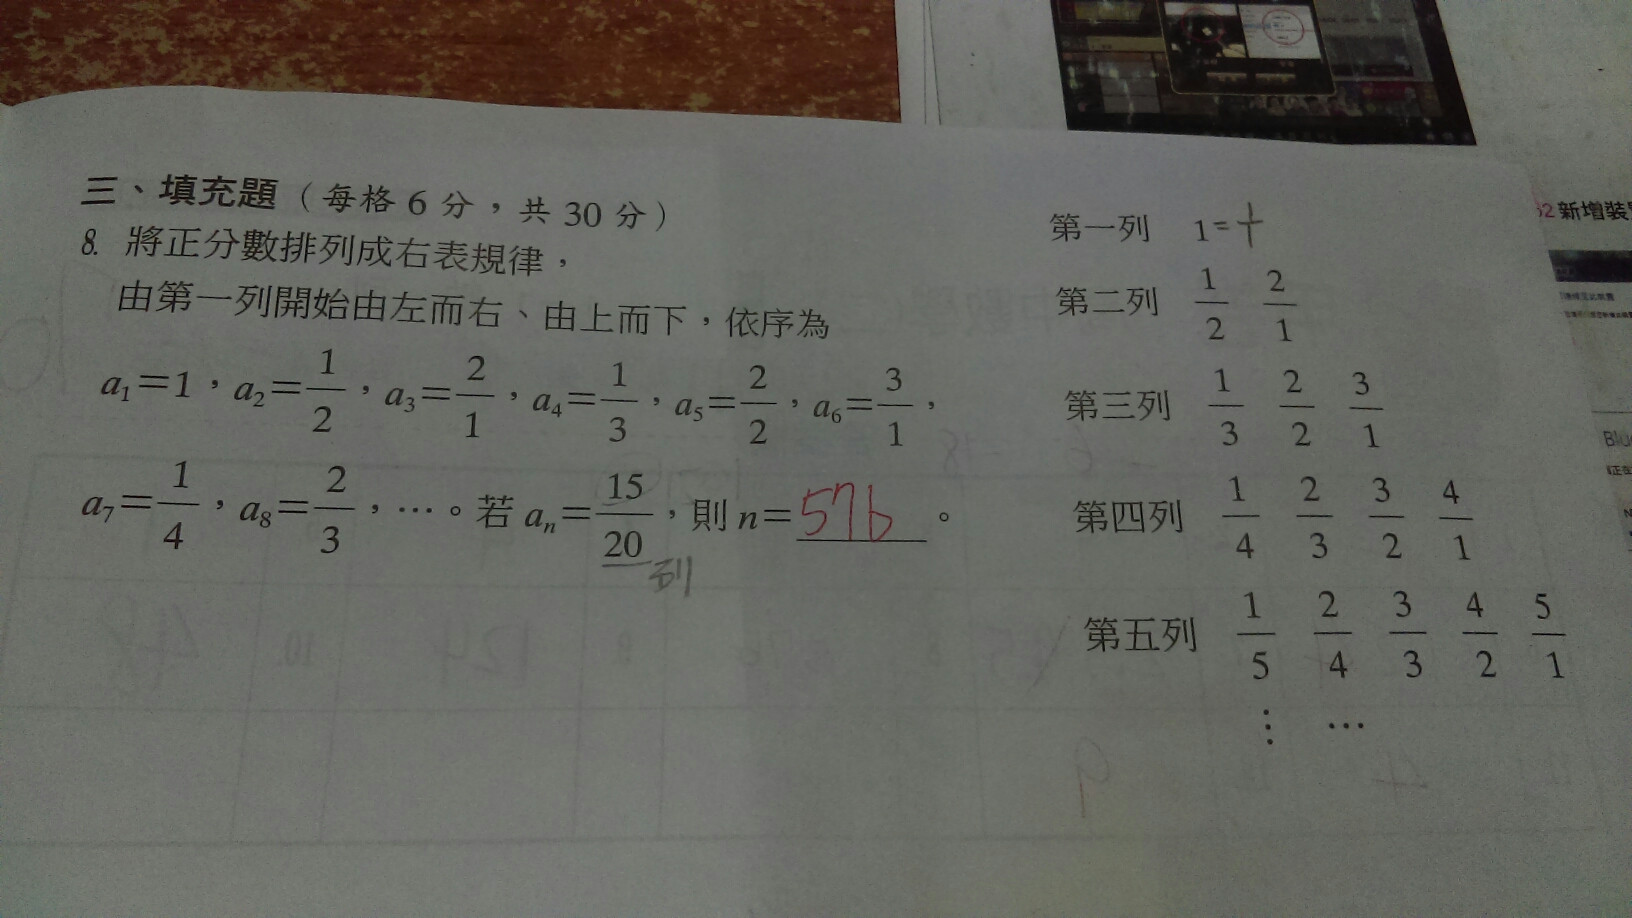 三、填充題（每格 6 分，共 30 分）
8. 將正分數排列成右表規律，
由第一列開始由左而右、由上而下，依序為
a₁＝1，a₂＝1/2，a₃＝2/1，a₄＝1/3，a₅＝2/2，a₆＝3/1，
a₇＝1/4，a₈＝2/3，…。若 aₙ＝15/20，則 n＝576。
列
第一列 1=1/1
第二列 1/2 2/1
第三列 1/3 2/2 3/1
第四列 1/4 2/3 3/2 4/1
第五列 1/5 2/4 3/3 4/2 5/1
⋮ …
新增裝